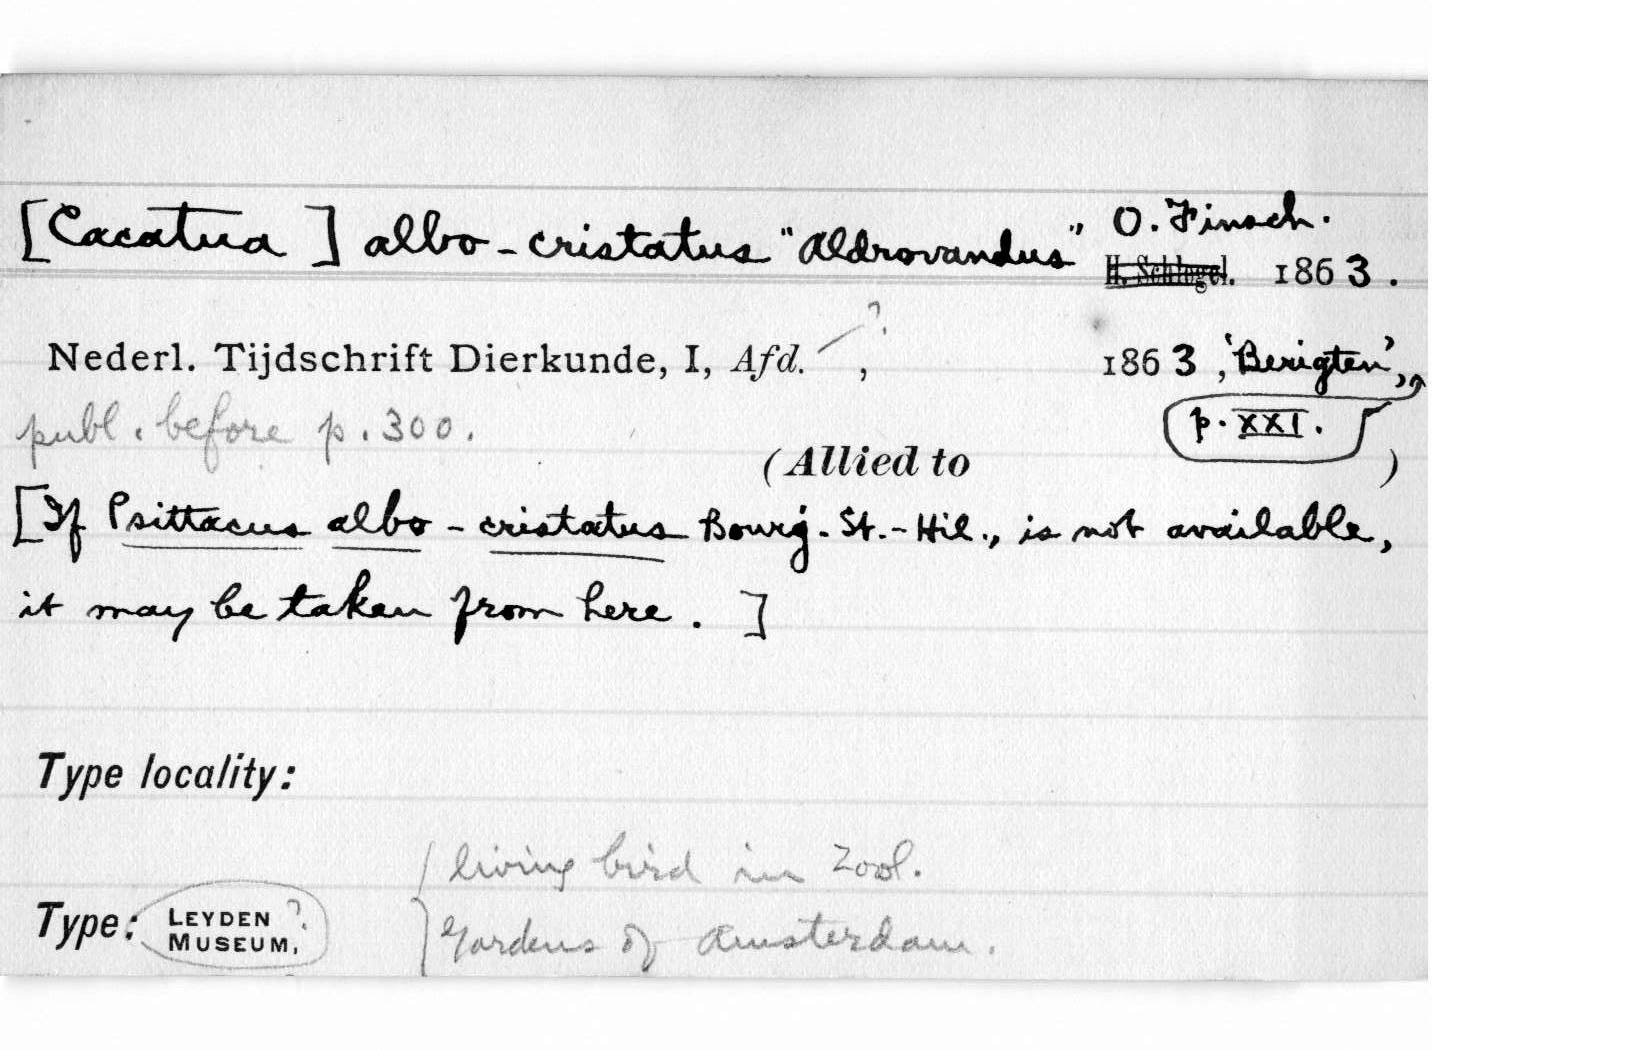 [Cacatua] albo-cristatus "Aldrovandus" O. Finsch.
H. Schlegel. 1863.
Nederl. Tijdschrift Dierkunde, I, Afd. ?, 1863, 'Berigten',
publ. before p. 300. p. XXI.
(Allied to )
[If Psittacus albo-cristatus Bourj. St.-Hil., is not available,
it may be taken from here. ]
Type locality:
living bird in Zool.
Type: LEYDEN ?
MUSEUM.
Gardens of Amsterdam.